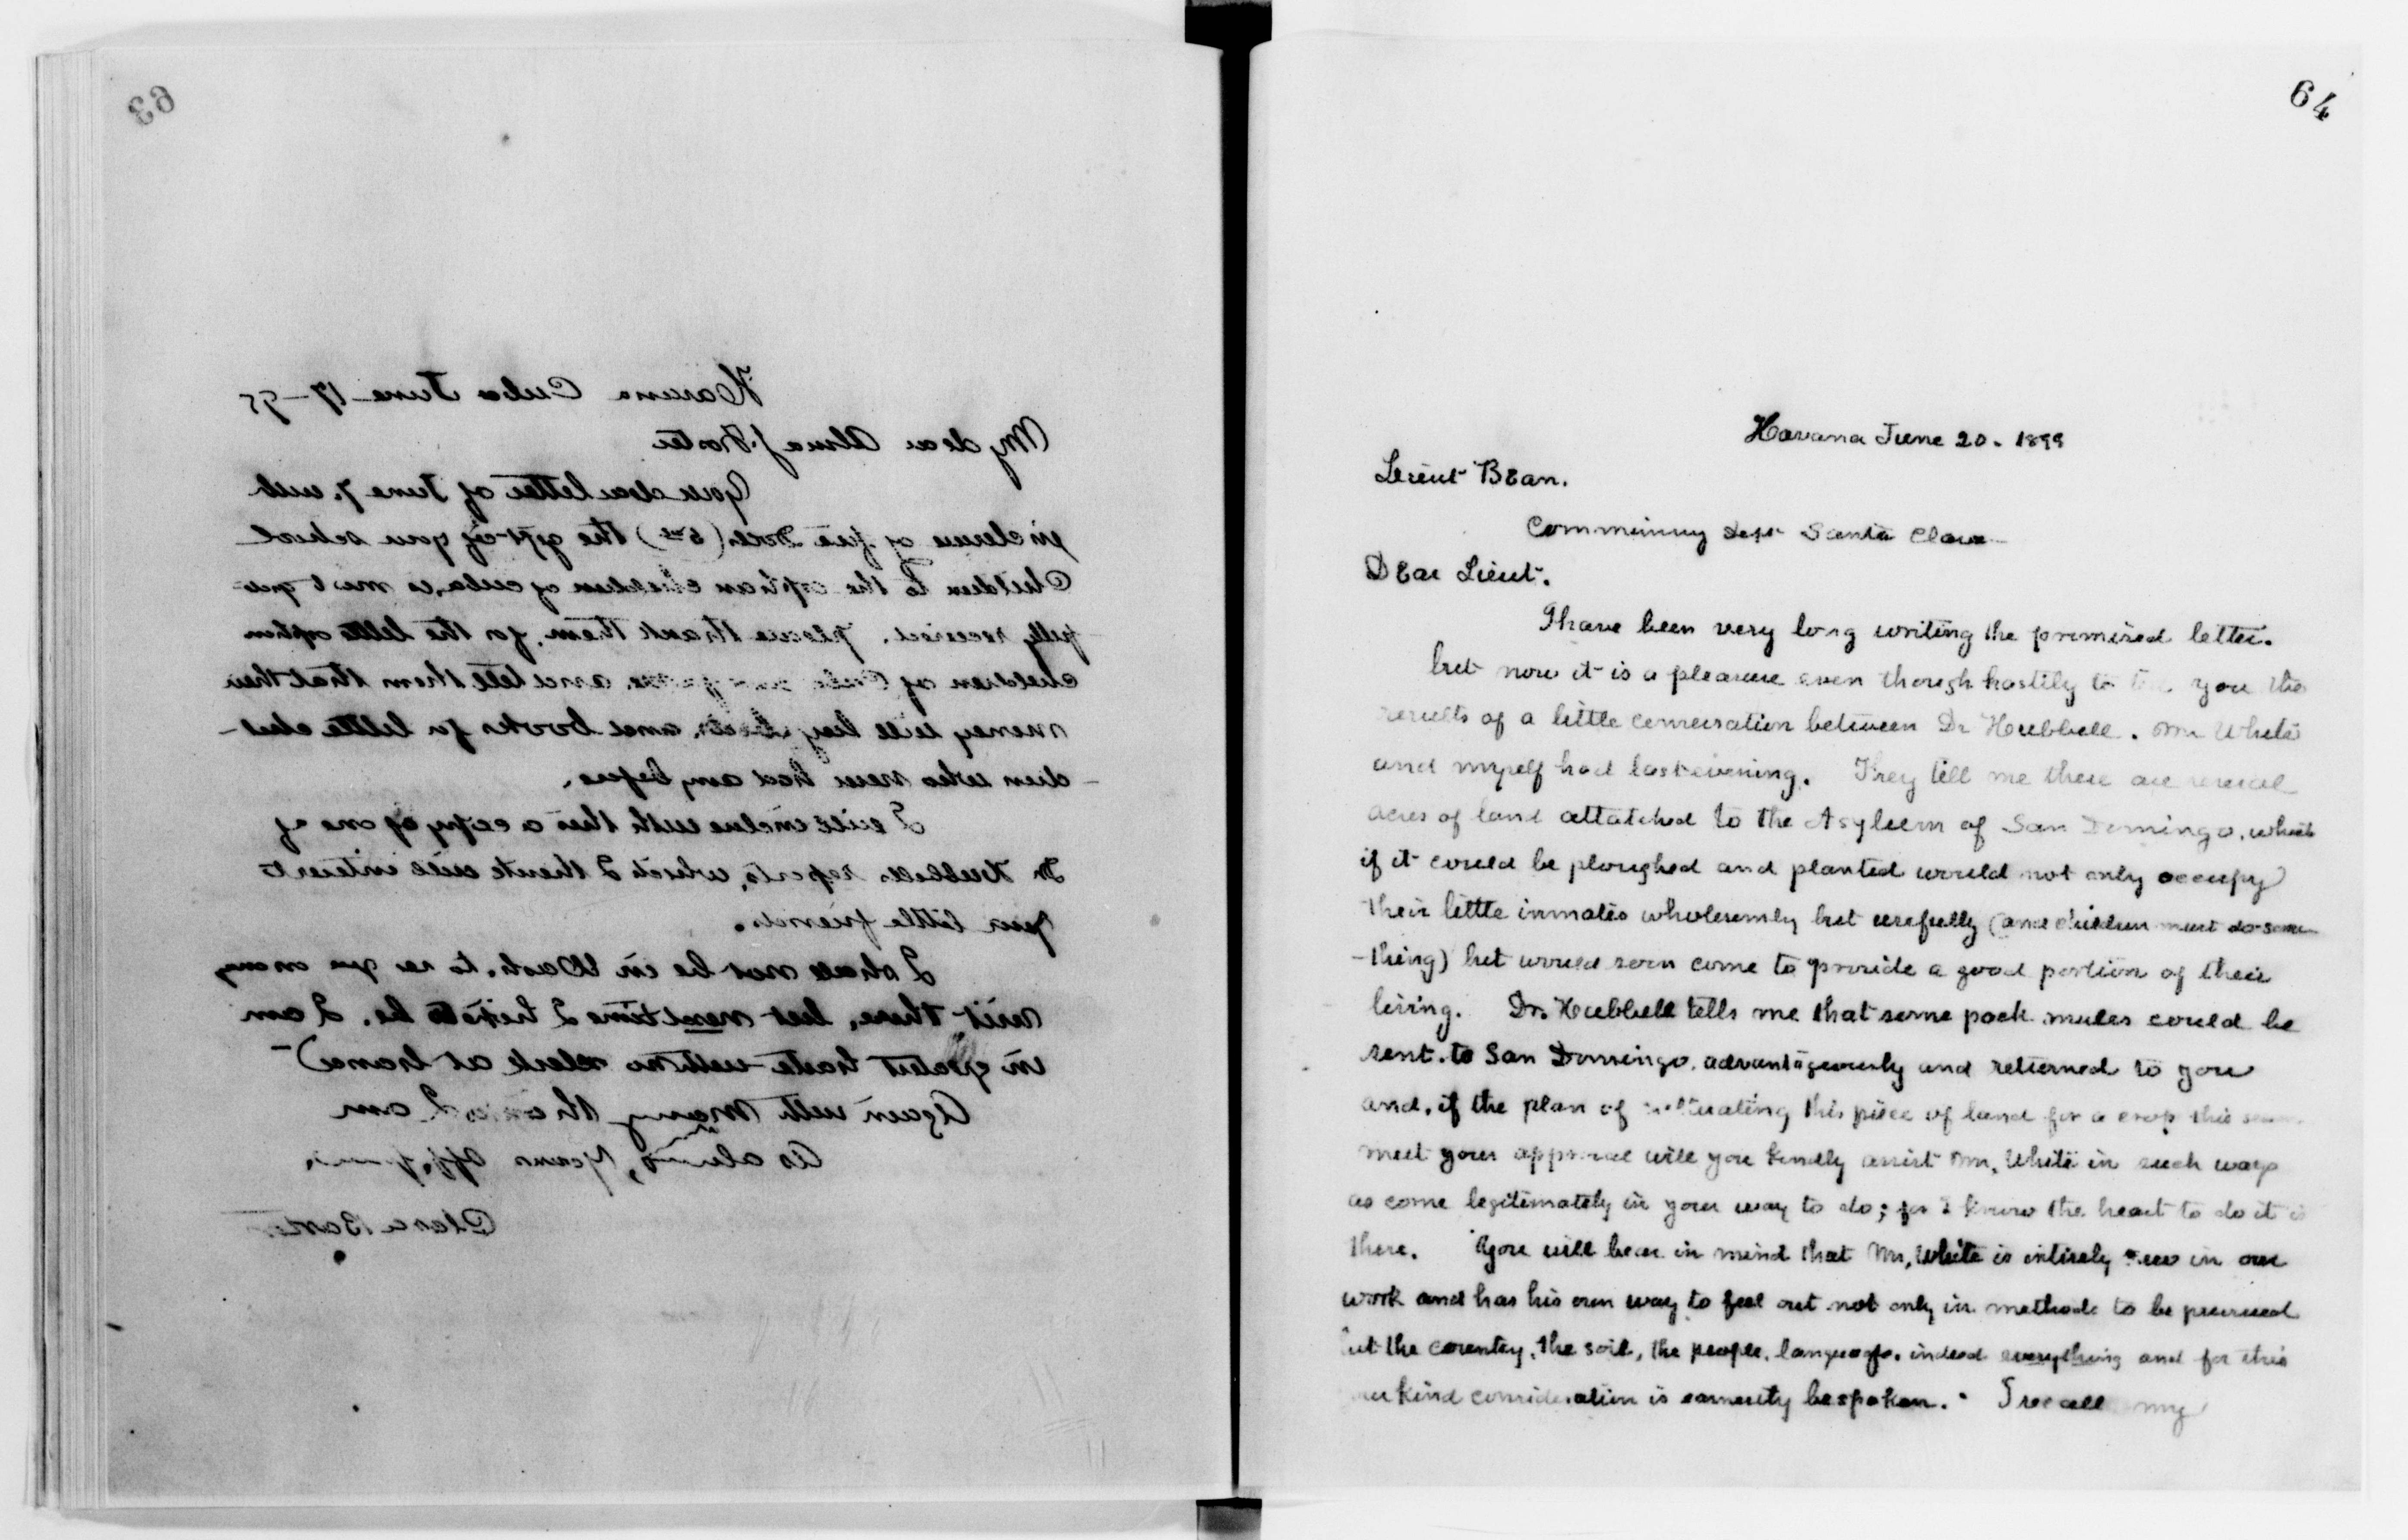 63
Havana Cuba June 17-99
My dear Alma J. Foster
Your dear letter of June 7. with
inclosure of five Dolls. (5.00) the gift of your school
Children to the orphan children of cuba, is most grate-
fully received. please thank them, for the little orphan
children of Cuba and tell them that their
money will buy and books for little chil-
-dren who never had any before.
I will inclose with this a copy of one of
Dr Hubbells reports, which I think will interest
your little friends.
I shall not be in Wash. to see you on my
visit there, but next time I hope to be. I am
in greatest haste with no clerk at hand)
Again with Many thanks I am
As always, Yours aff.
Clara Barton
64
Havana June 20. 1899
Lieut Bean.
Commissary Dept Santa Clara
DEar Lieut.
I have been very long writing the promised letter.
but now it is a pleasure even though hastily to you the
results of a little conversation between Dr Hubbell. Mr White
and myself had last evening. They tell me there are several
acres of land attatched to the Asylum of San Domingo, which
if it could be ploughed and planted would not only occupy
their little inmates wholesomely but usefully (and children must do some
-thing) but would soon come to provide a good portion of their
living. Dr. Hubbell tells me that some pack mules could be
sent. to San Domingo. advantageously and returned to you
and, if the plan of cultivating this piece of land for a crop this
meet your approval will you kindly assist Mr. White in such ways
as come legitimately in your way to do; for I know the heart to do it is
there. You will bear in mind that Mr. White is intirely new in our
work and has his own way to feel out not only in methods to be pursued
but the country, the soil, the people, language. indeed everything and for this
kind consideration is earnestly bespoken. I recall my